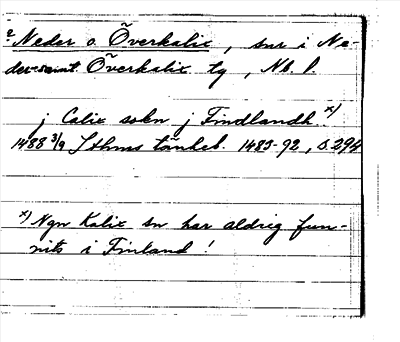 ? Neder o. Överkalix, snr i Ne-
der- samt Överkalix tg, Nb. l.
j Calix sokn j Findlandh x)
1488 3/9 Sthms tänkeb. 1483-92, s. 294
x) Ngn Kalix sn har aldrig fun-
nits i Finland!